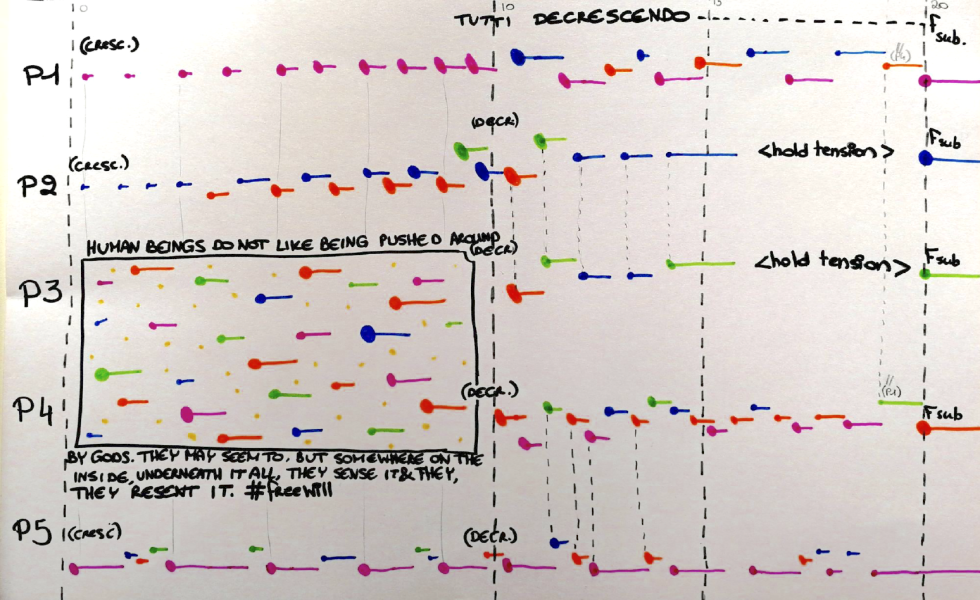 0
10
15
20
TUTTI DECRESCENDO
F sub.
(CRESC.)
P1
(P4)
(DECR.)
(CRESC.)
P2
<hold tension>
Fsub
HUMAN BEINGS DO NOT LIKE BEING PUSHED AROUND
(DECR)
P3
<hold tension>
Fsub
(DECR.)
P4
(P1)
Fsub
BY GODS. THEY MAY SEEM TO, BUT SOMEWHERE ON THE
INSIDE, UNDERNEATH IT ALL, THEY SENSE IT & THEY,
THEY RESENT IT. #freewill
P5
(CRESC)
(DECR.)